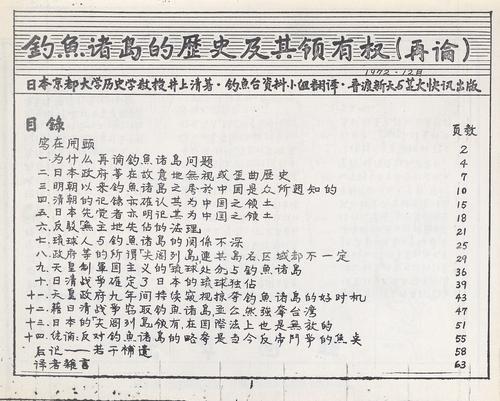 釣魚诸岛的歷史及其领有权(再論)
1972.12日
日本京都大学历史学教授井上清著・釣魚台資料小组翻译・晋渡新大与芝大快讯出版
目錄 頁数
寫在開頭 2
一.为什么再論釣魚诸島问题 4
二.日本政府等在故意地無視或歪曲歷史 7
三.明朝以来釣魚诸島之屬於中國是众所週知的 10
四.清朝的记錄亦確认其为中国之领土 15
五.日本先覚者亦明记其为中国之领土 18
六.反駁"無主地先佔"的法理 21
七.琉球人与釣魚诸島的関係不深 25
八.政府等的所謂"尖阁列島",連其島名、区域都不一定 29
九.天皇制軍国主义的琉球处分与釣魚诸島 36
十.日清战争確定了日本的琉球独佔 39
十一.天皇政府九年间持续窥视掠夺釣魚诸島的好时机 43
十二.藉日清战争窃取釣魚诸島並公然强奪台灣 47
十三.日本的"尖阁列島"领有,在国際法上也是無效的 51
十四.结論:反対釣魚诸島的略奪是当今反帝鬥爭的焦点 55
后记——若干補遗 58
译者雜言 63
1